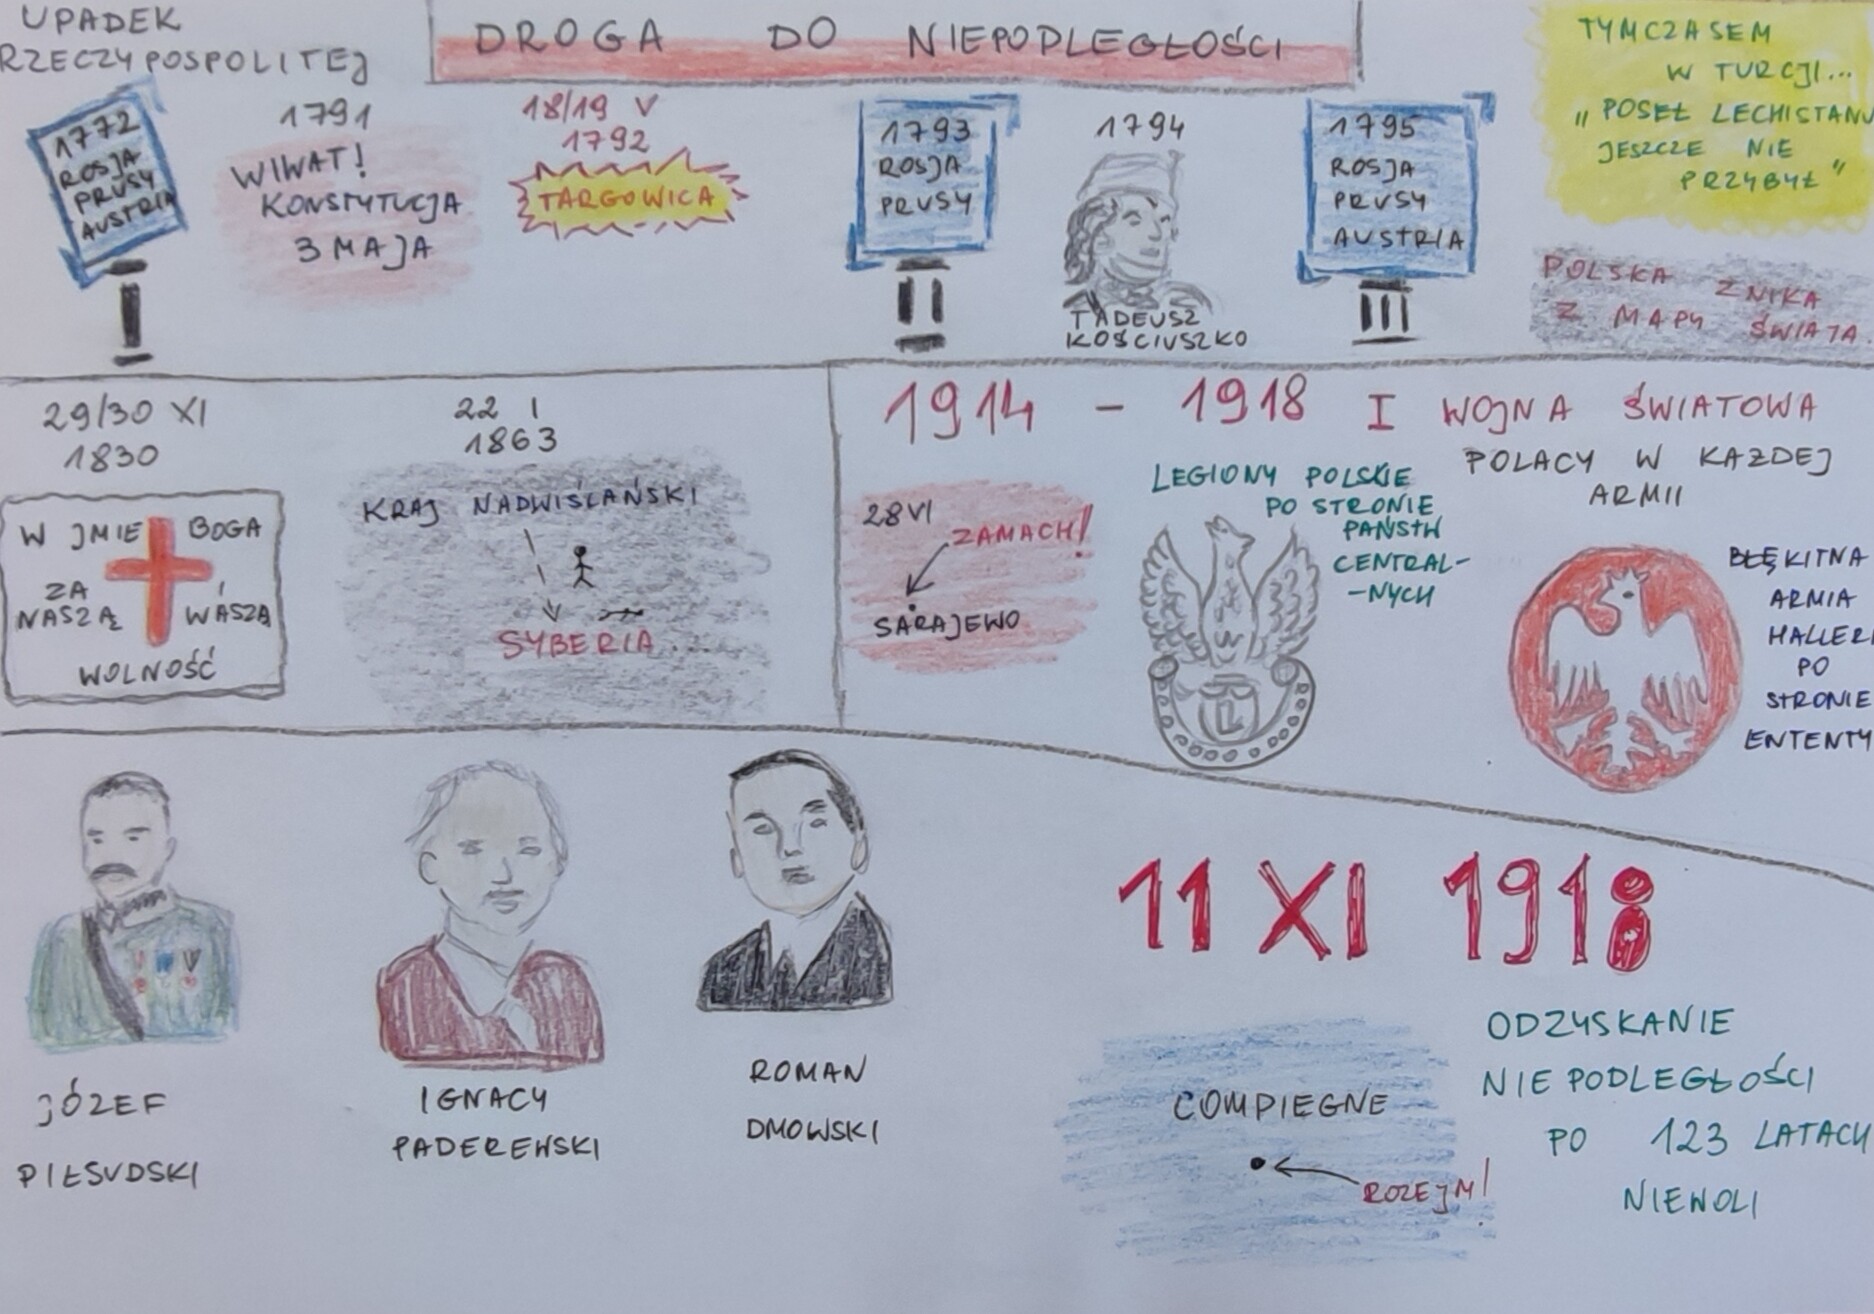 UPADEK
RZECZYPOSPOLITEJ
DROGA DO NIEPODLEGŁOŚCI
1772
ROSJA
PRUSY
AUSTRIA
I
1791
WIWAT!
KONSTYTUCJA
3 MAJA
18/19 V
1792
TARGOWICA
1793
ROSJA
PRUSY
II
1794
TADEUSZ
KOŚCIUSZKO
1795
ROSJA
PRUSY
AUSTRIA
III
TYMCZASEM
W TURCJI...
"POSEŁ LECHISTANU
JESZCZE NIE
PRZYBYŁ"
POLSKA ZNIKA
Z MAPY ŚWIATA
29/30 XI
1830
W JMIE BOGA
ZA I
NASZĄ WASZĄ
WOLNOŚĆ
22 I
1863
KRAJ NADWIŚLAŃSKI
SYBERIA...
1914 - 1918 I WOJNA ŚWIATOWA
POLACY W KAZDEJ
ARMII
28 VI
ZAMACH!
SARAJEWO
LEGIONY POLSKIE
PO STRONIE
PAŃSTW
CENTRAL-
-NYCH
L
BŁĘKITNA
ARMIA
HALLERA
PO
STRONIE
ENTENTY
JÓZEF
PIŁSUDSKI
IGNACY
PADEREWSKI
ROMAN
DMOWSKI
11 XI 1918
COMPIEGNE
ROZEJM!
ODZYSKANIE
NIEPODLEGŁOŚCI
PO 123 LATACH
NIEWOLI